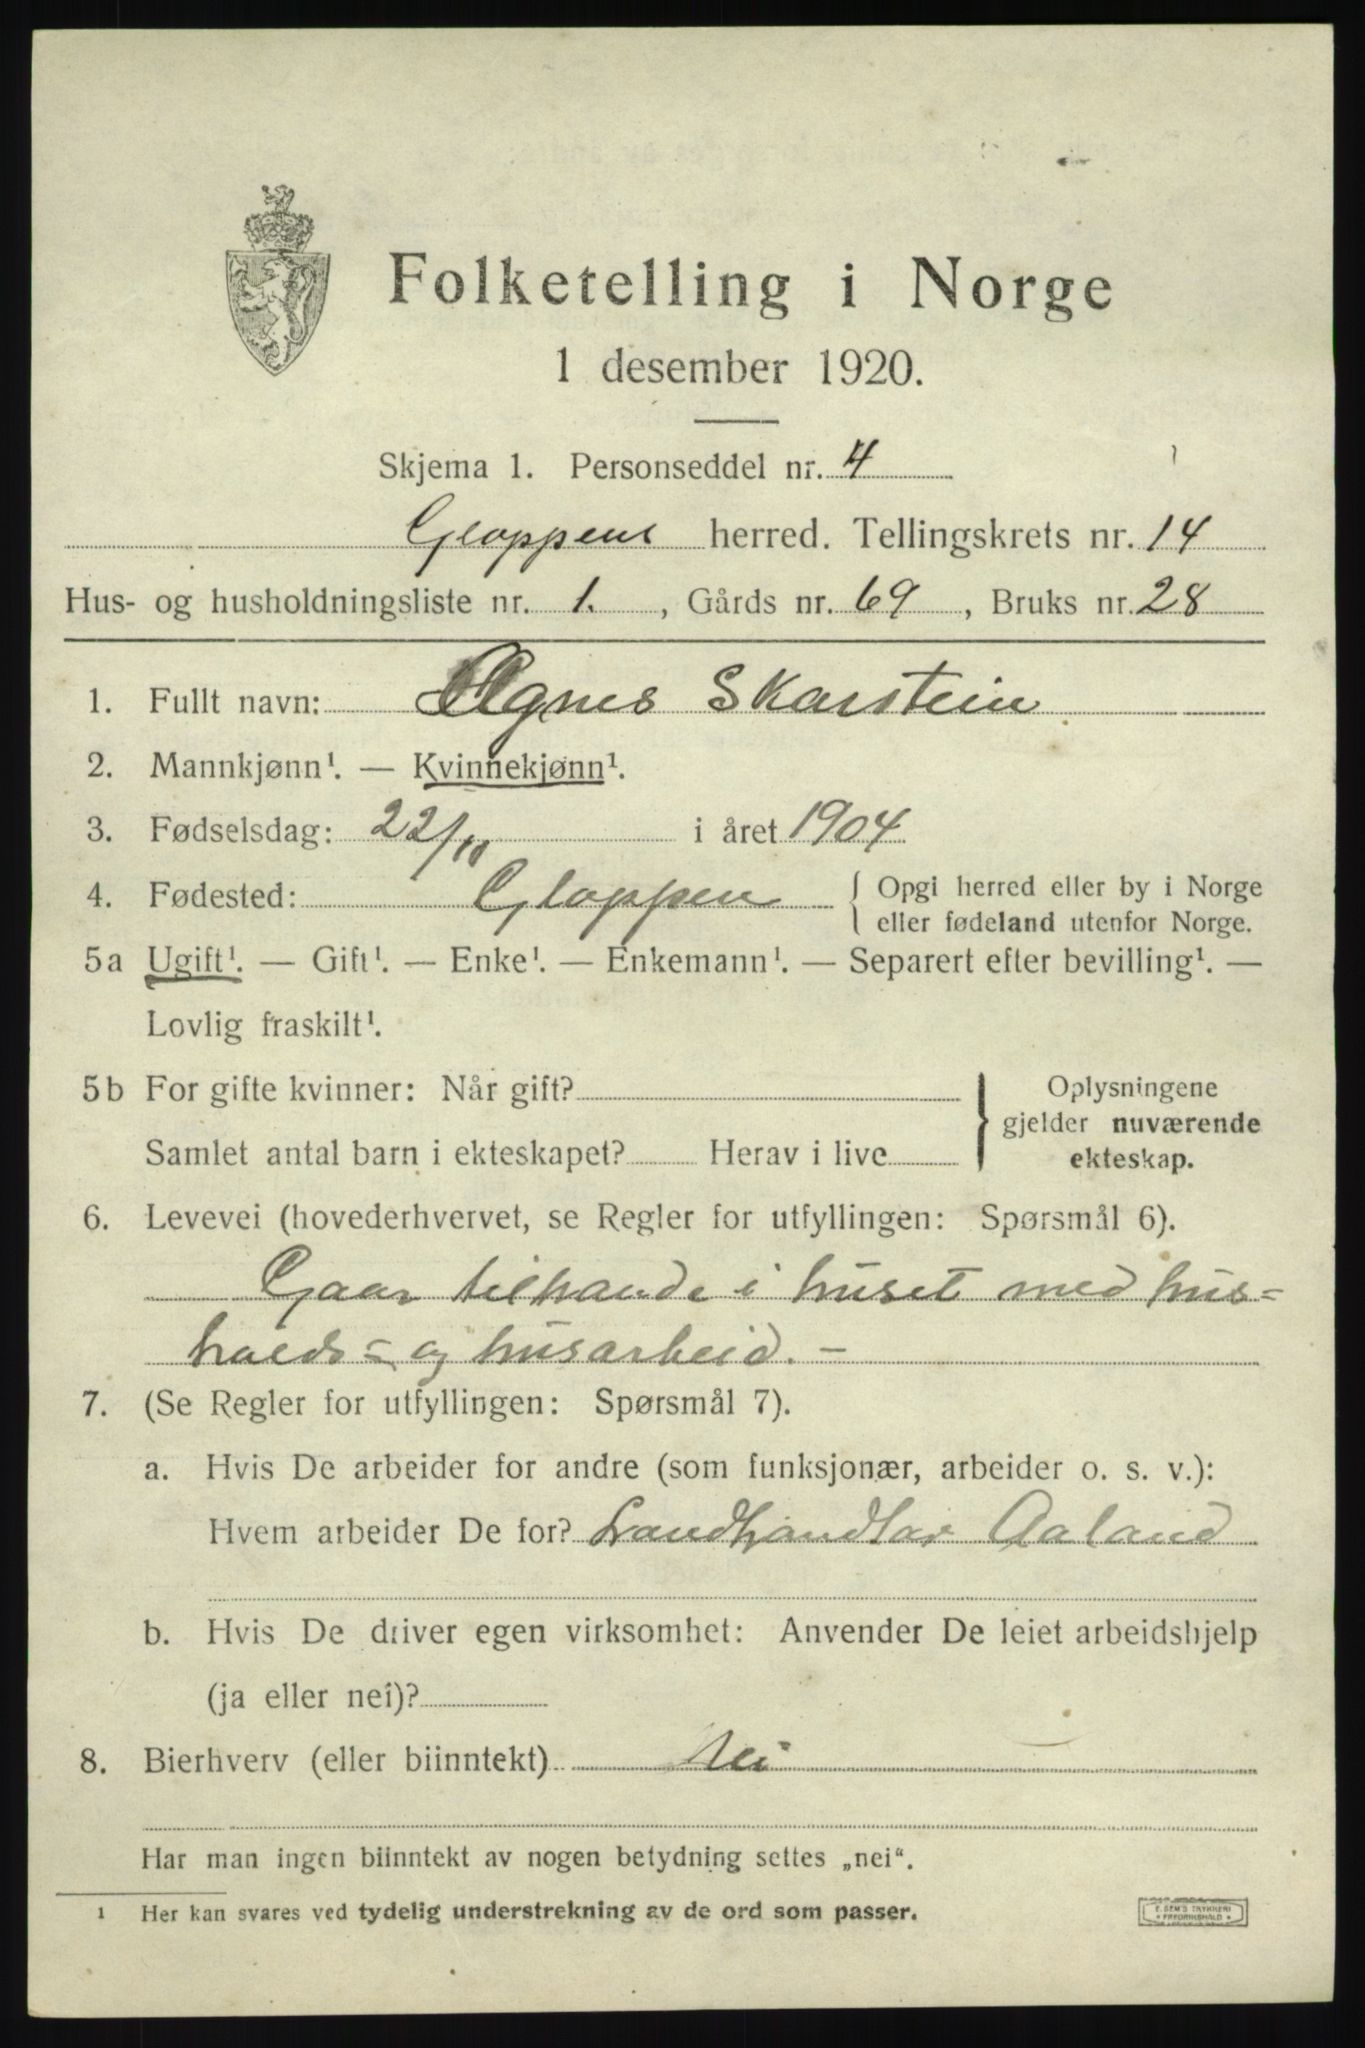 Folketelling i Norge
1 desember 1920.
Skjema 1. Personseddel nr. 4
Gloppens herred. Tellingskrets nr. 14
Hus- og husholdningsliste nr. 1. , Gårds nr. 69 , Bruks nr. 28
1. Fullt navn: Agnes Skarstein
2. Mannkjønn¹. — Kvinnekjønn¹.
3. Fødselsdag: 22/10 i året 1904
4. Fødested: Gloppen { Opgi herred eller by i Norge
eller fødeland utenfor Norge.
5a Ugift¹. — Gift¹. — Enke¹. — Enkemann¹. — Separert efter bevilling¹. —
Lovlig fraskilt¹.
5b For gifte kvinner: Når gift? } Oplysningene
gjelder nuværende
Samlet antal barn i ekteskapet? Herav i live ekteskap.
6. Levevei (hovederhvervet, se Regler for utfyllingen: Spørsmål 6).
Gaar tilhande i huset med hus=
halds= og husarbeid. –
7. (Se Regler for utfyllingen: Spørsmål 7).
a. Hvis De arbeider for andre (som funksjonær, arbeider o. s. v.):
Hvem arbeider De for? Landhandlar Aaland
b. Hvis De driver egen virksomhet: Anvender De leiet arbeidshjelp
(ja eller nei)?
8. Bierhverv (eller biinntekt) Nei
Har man ingen biinntekt av nogen betydning settes „nei“.
¹ Her kan svares ved tydelig understrekning av de ord som passer.
E. SEM'S TRYKKERI
FREDRIKSHALD